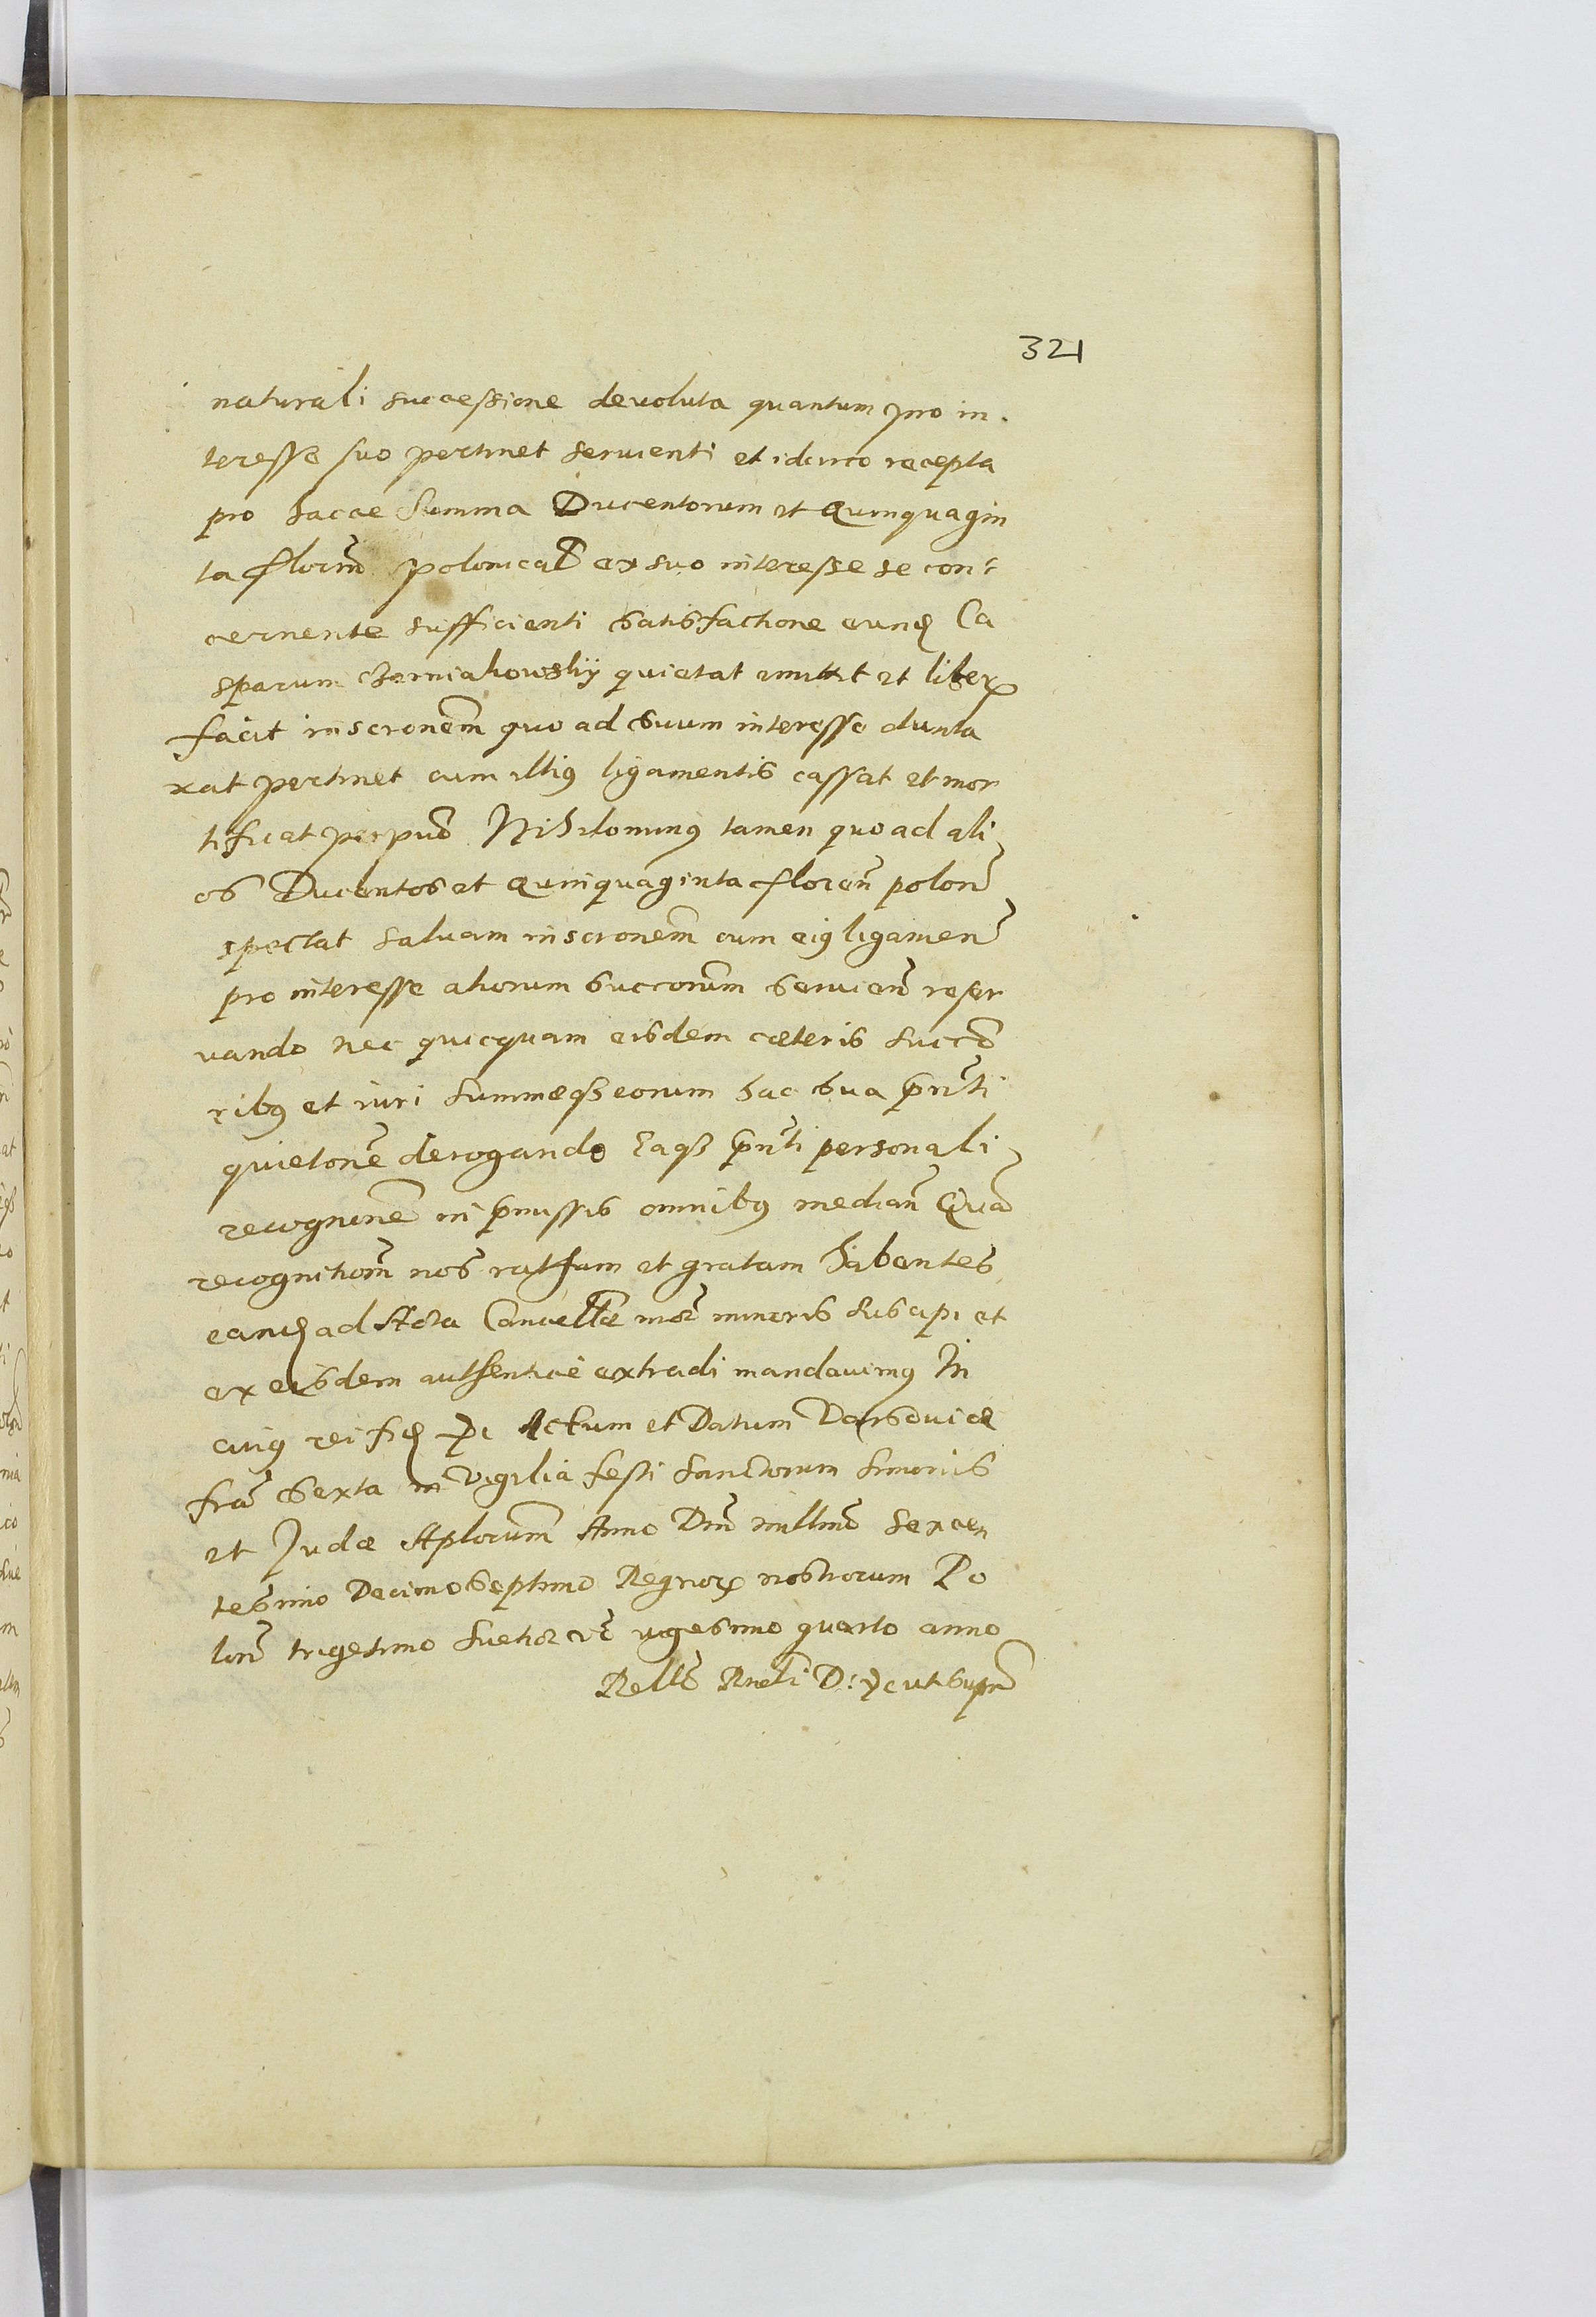 321
naturali successione devoluta quantum pro in
teresse suo pertinet servienti et idcirco recepta
pro hacce summa Ducentorum et Quinquagin
ta floru͂ polonical ex suo interesse se con
cernente sufficienti satisfactione eund Ca
sparum Czerniakowskÿ quietat emittit et liber
facit inscronem quo ad suum interesse dunta
xat pertinet cum illius ligamentis cassat et mor
tificat perpuo Nihilominus tamen quo ad ali
os Ducentos et Quinquaginta floren polon
spectat salvam inscronem cum eius ligamen
pro interesse aliorum succrorum servien reser
vando nec quicquam eisdem cæteris succo
ribus et iuri summæq3 eorum hac sua pnti
quietone derogando Eaq3 pnti personali
recognine in pmissis omnibus median Qua
recognitiom nos ratam et gratam habentes
eand ad Acta Cancellæ mor minoris suscipi et
ex eisdem authentice extradi mandavimus In
cuius rei fid Actum et Datum Varsoviæ
fra sexta in vigilia festi Sanctorum Simonis
et Judæ Aplorum Anno Dni millmo sexcen
tesimo Decimo septimo Regnor nostrorum Po
lon trigesimo Suetiæ v vigesimo quarto anno
Relle Rneli D: ut supra